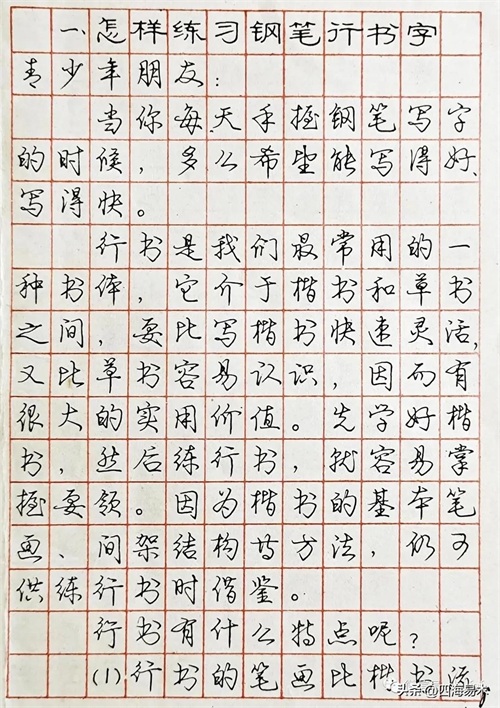 一、怎样练习钢笔行书字
青少年朋友：
当你每天手握钢笔写字
的时候，多么希望能写得好、
写得快。
行书是我们最常用的一
种书体，它介于楷书和草书
之间，要比写楷书快速灵活，
又比草书容易认识，因而有
很大的实用价值。先学好楷
书，然后练行书，就容易掌
握要领。因为楷书的基本笔
画、间架结构等方法，仍可
供练行书时借鉴。
行书有什么特点呢？
(1)行书的笔画比楷书流
头条@四海易水